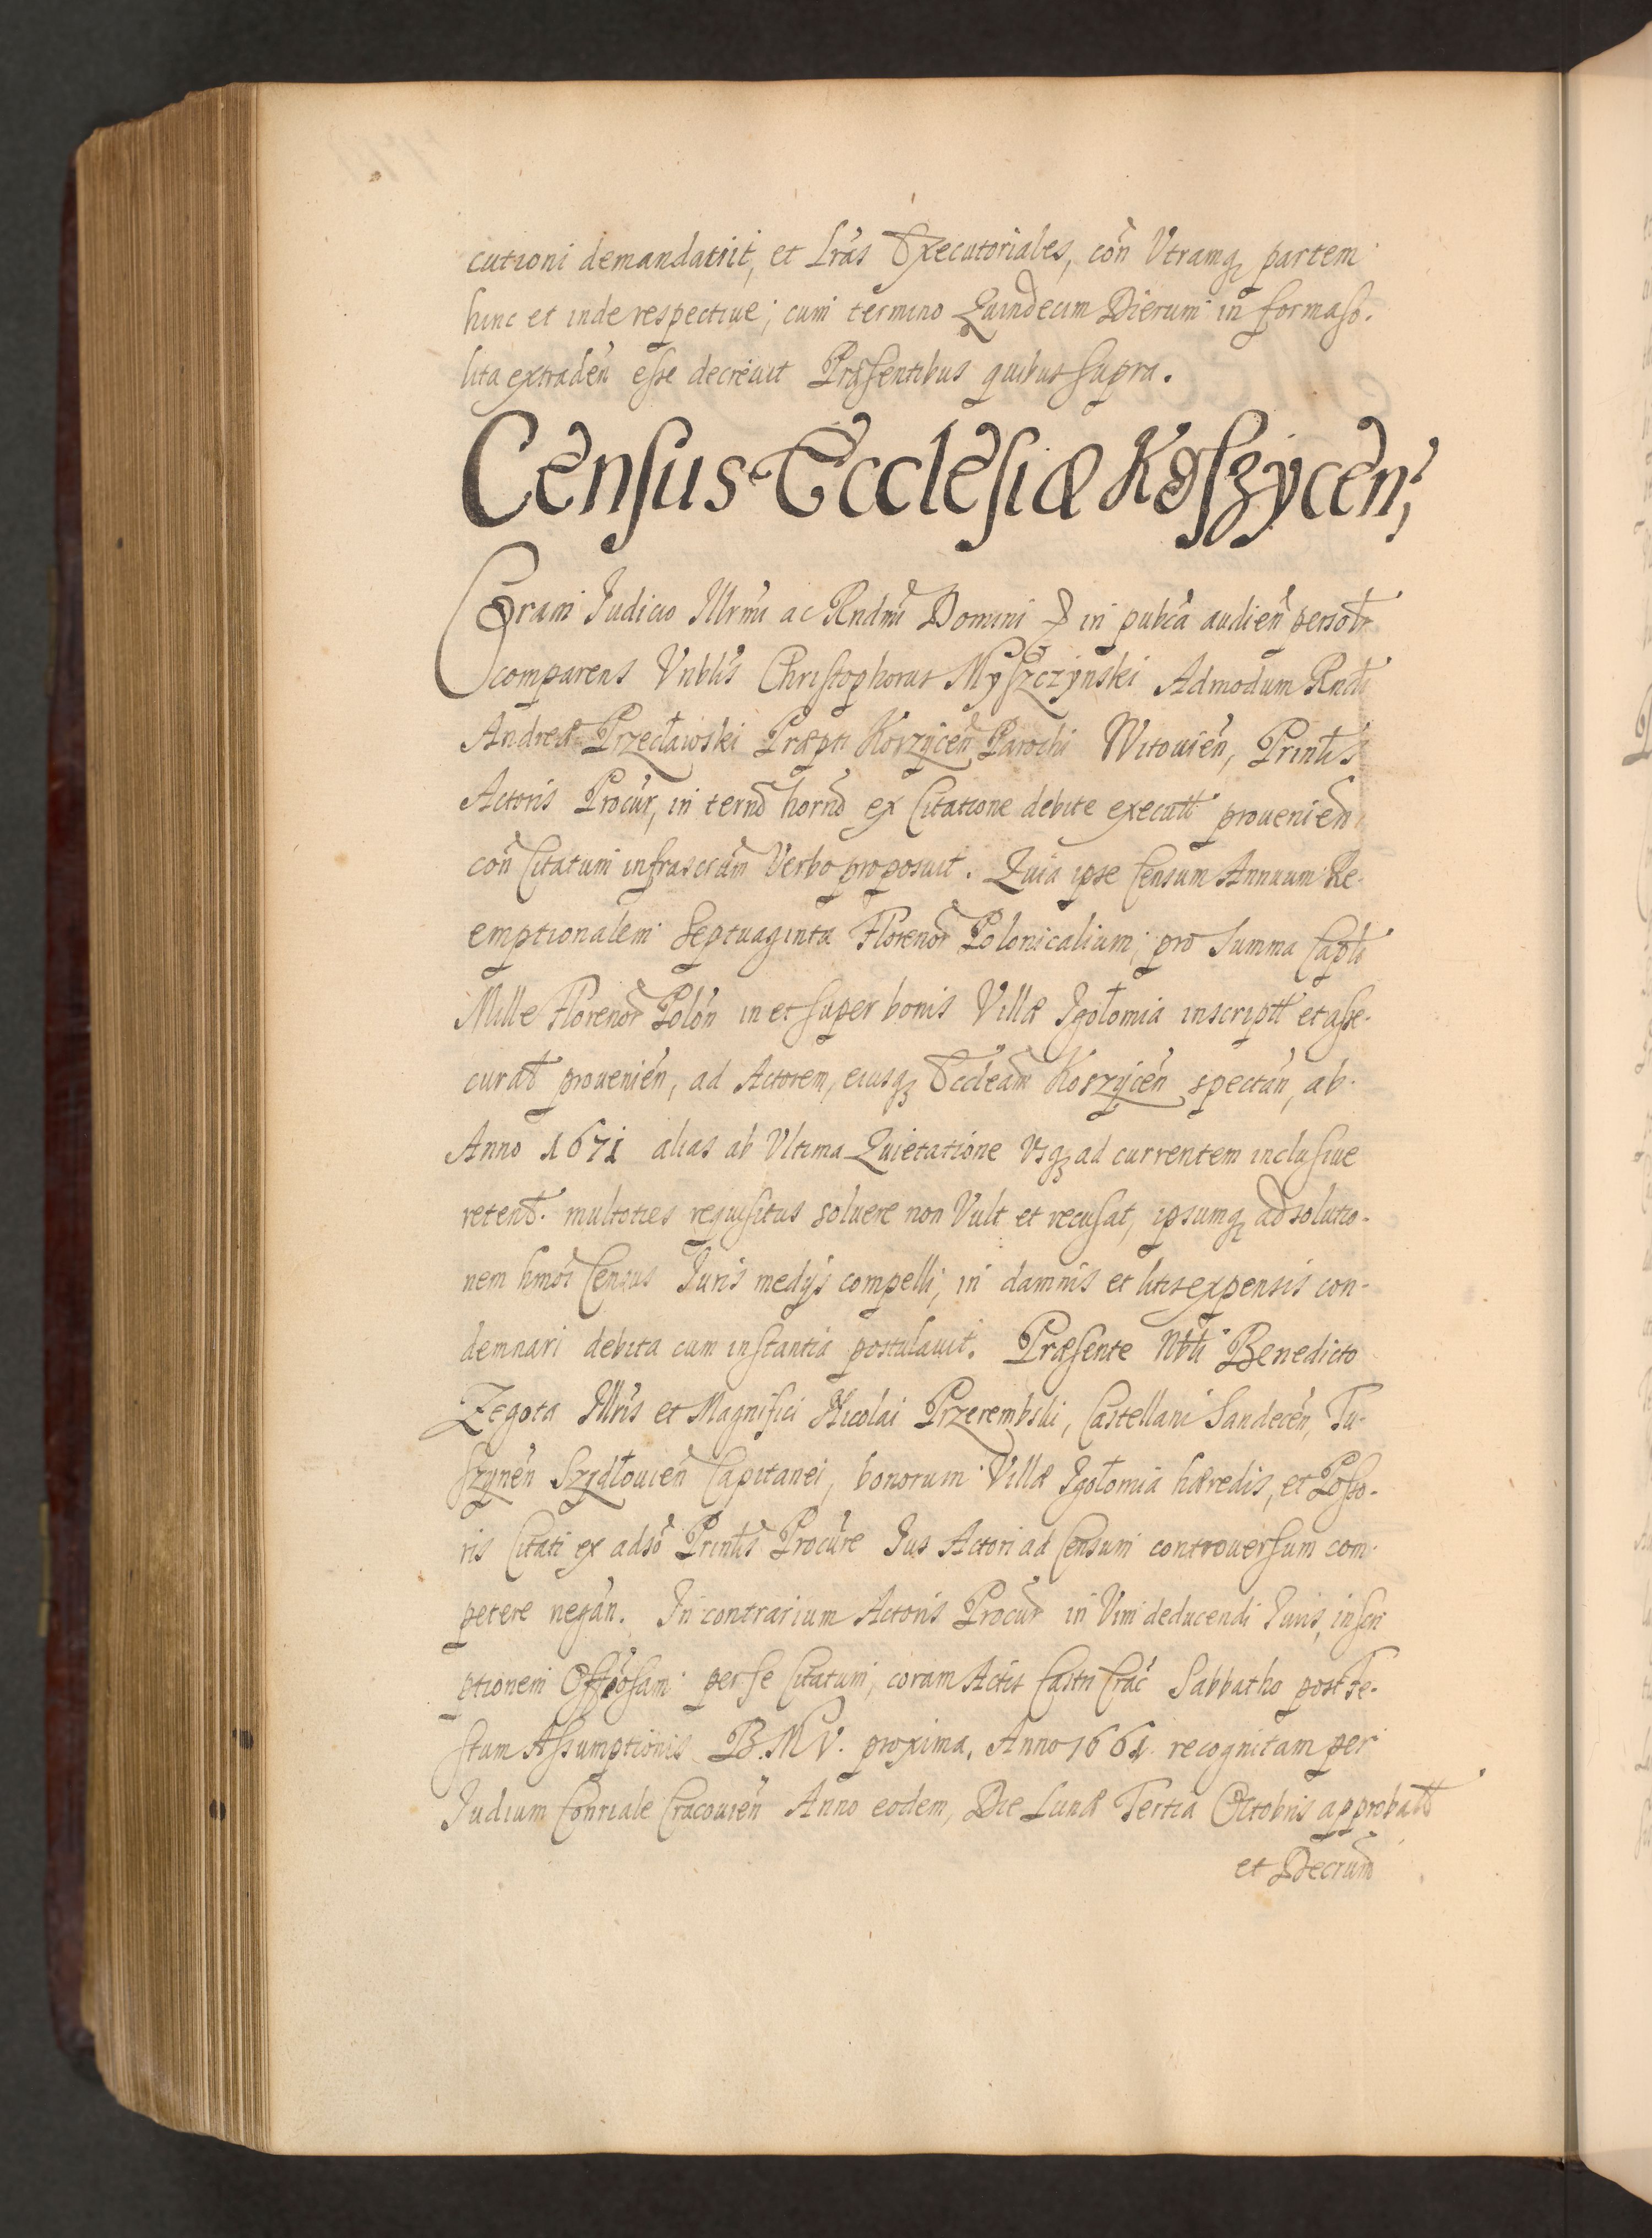 cutioni demandavit, et Lrãs Executoriales, coñ Utramq partem
hinc et inde respective; cum termino Quindecim Dierum in forma so-
lita extradeñ esse decrevit Præsentibus quibus supra.
Census Ecclesiæ Koszyceñ;
Coram Judicio Illrmi ac Rndmi Domini in publca audieñ personłr
comparens Vnblis Christophorus Myszczynski Admodum Rndi
Andreæ Przecławski Præpti Koszyceñ Parochi Witovieñ, Prinlis
Actoris Procur, in termo horno ex Citatione debite executt provenieñ
coñ Citatum infrascrum Verbo proposuit. Quia ipse Censum Annuum Re-
emptionalem Septuaginta Florenor Polonicalium, pro Summa Capli
Mille Florenor Poloñ in et super bonis Villæ Igołomia inscriptt et asse-
curat provenieñ, ad Actorem, eiusq Eccleam Koszyceñ spectañ, ab
Anno 1671 alias ab Ultima Quietatione usq ad currentem inclusive
retent. multoties requisitus solvere non Vult et recusat, ipsumq ad solutio-
nem hmoi Census Juris medijs compelli, in damnis et litis expensis con-
demnari debita cum instantia postulavit. Præsente Nbli Benedicto
Zegota Illris et Magnifici Nicolai Przerembski, Castellani Sandeceñ, Tu-
szyneñ Szydłovieñ Capitanei, bonorum Villæ Igołomia hæredis, et Posso-
ris Citati ex adso Prinlis Procure Jus Actori ad Censum controversum com-
petere negañ. In contrarium Actoris Procur in Vim deducendi Juris, inscri
ptionem Offõsam per se Citatum, coram Actis Castri Crac Sabbatho post Fe-
stum Assumptionis B.M.V. proxima, Anno 1661 recognitam per
Judium Conriale Cracovieñ Anno eodem, Die Lunæ Tertia Octobris approbatt
et Decrum